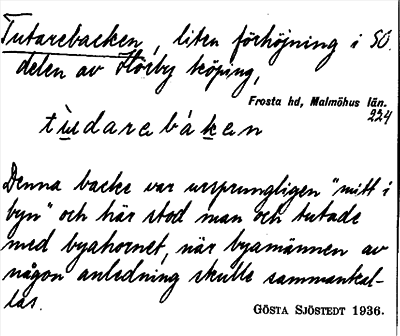 Tutarebacken, liten förhöjning i SO.
delen av Hörby köping,
Frosta hd, Malmöhus län.
224
tùdarebáken
Denna backe var ursprungligen "mitt i
byn" och här stod man och tutade
med byahornet, när byamännen av
någon anledning skulle sammankal-
las.
GÖSTA SJÖSTEDT 1936.